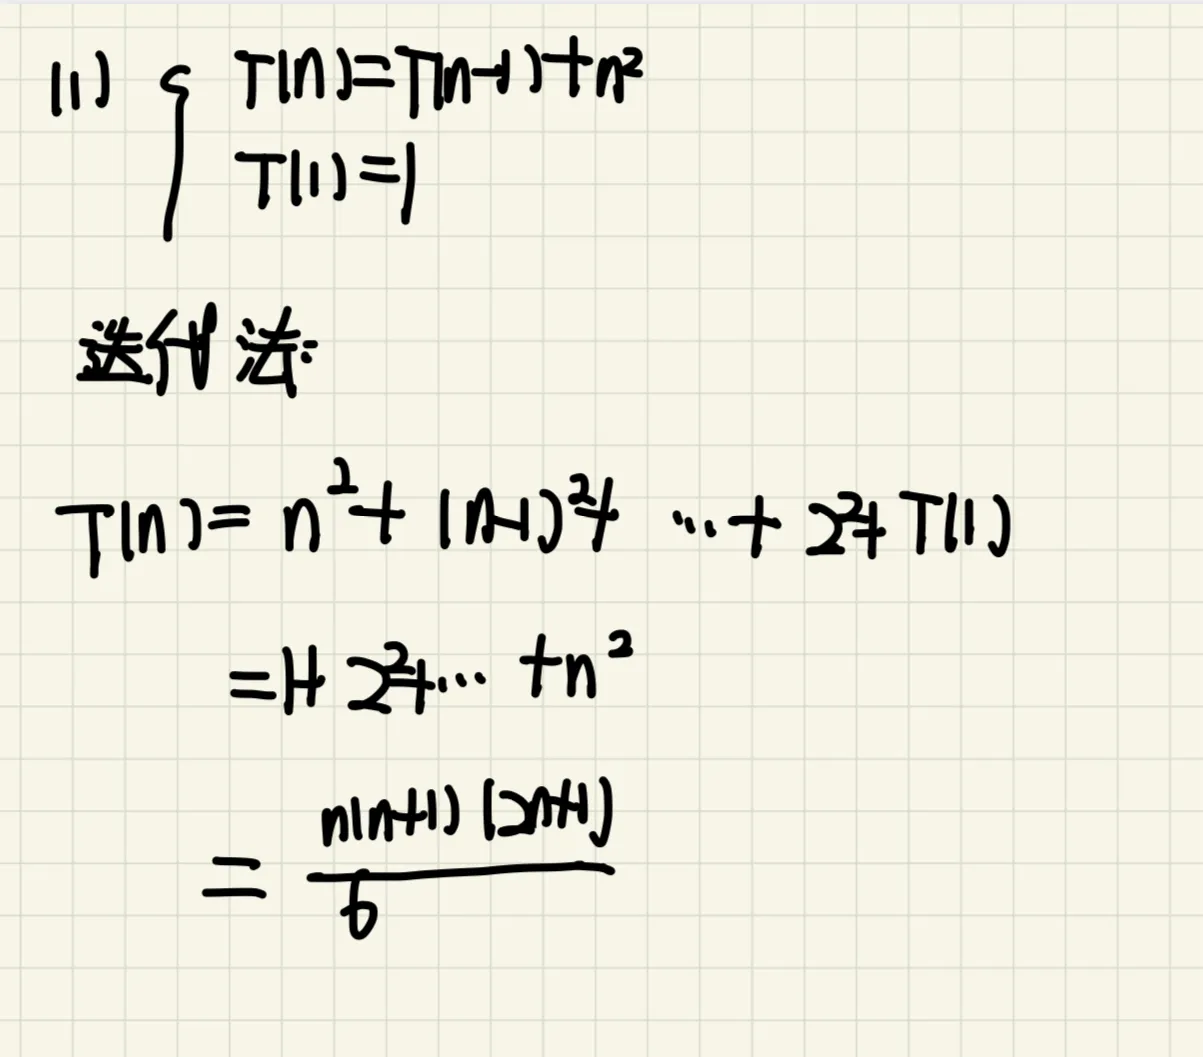 (1) { T(n)=T(n-1)+n²
T(1)=1
迭代法:
T(n)= n²+(n-1)²+ …+ 2²+T(1)
=1+2²+… +n²
= n(n+1)(2n+1)
6